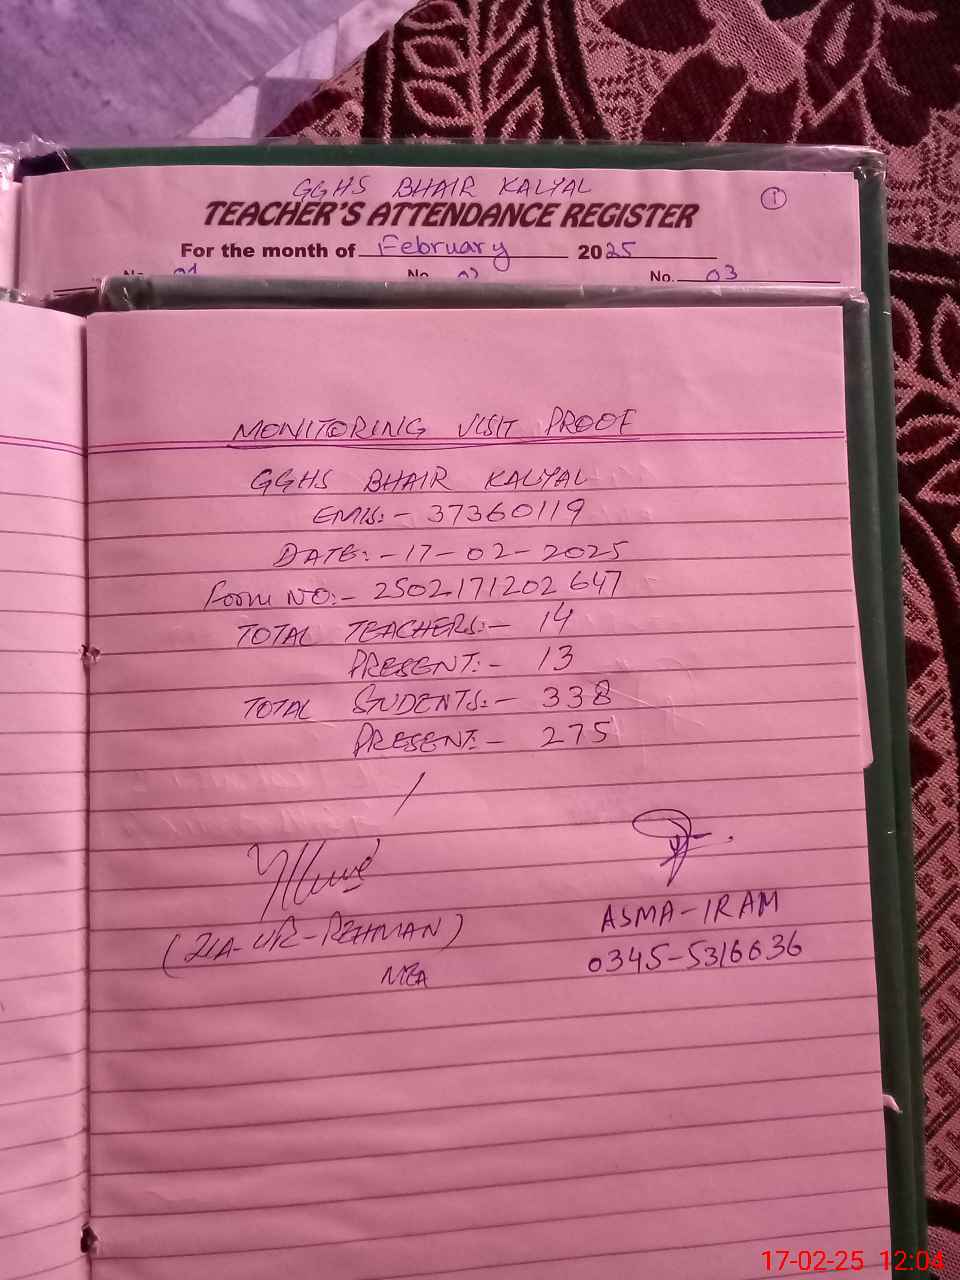 GGHS BHAIR KALYAL
1
TEACHER'S ATTENDANCE REGISTER
For the month of February 2025
No. 01 No. 02 No. 03
MONITORING VISIT PROOF
GGHS BHAIR KALYAL
EMIS:- 37360119
DATE:- 17-02-2025
Form NO:- 2502171202647
TOTAL TEACHERS:- 14
PRESENT:- 13
TOTAL STUDENTS:- 338
PRESENT:- 275
(ZIA-UR-REHMAN)
MEA
ASMA-IRAM
0345-5316636
17-02-25 12:04